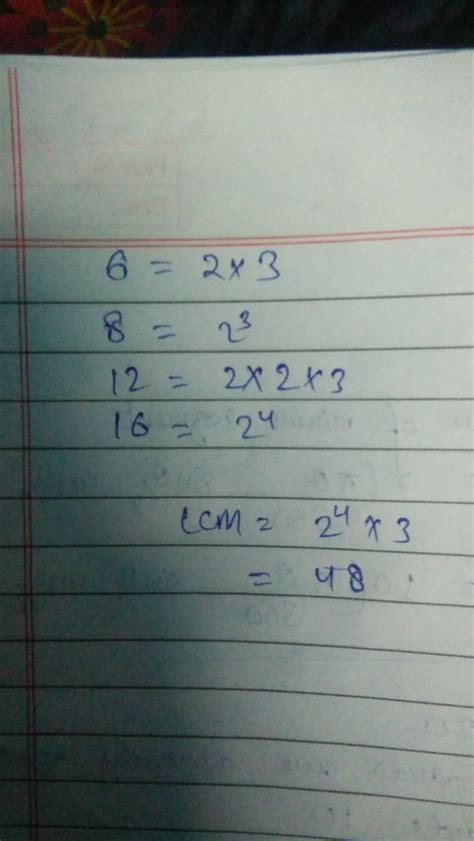 6 = 2×3
8 = 2³
12 = 2×2×3
16 = 2⁴
LCM = 2⁴×3
= 48